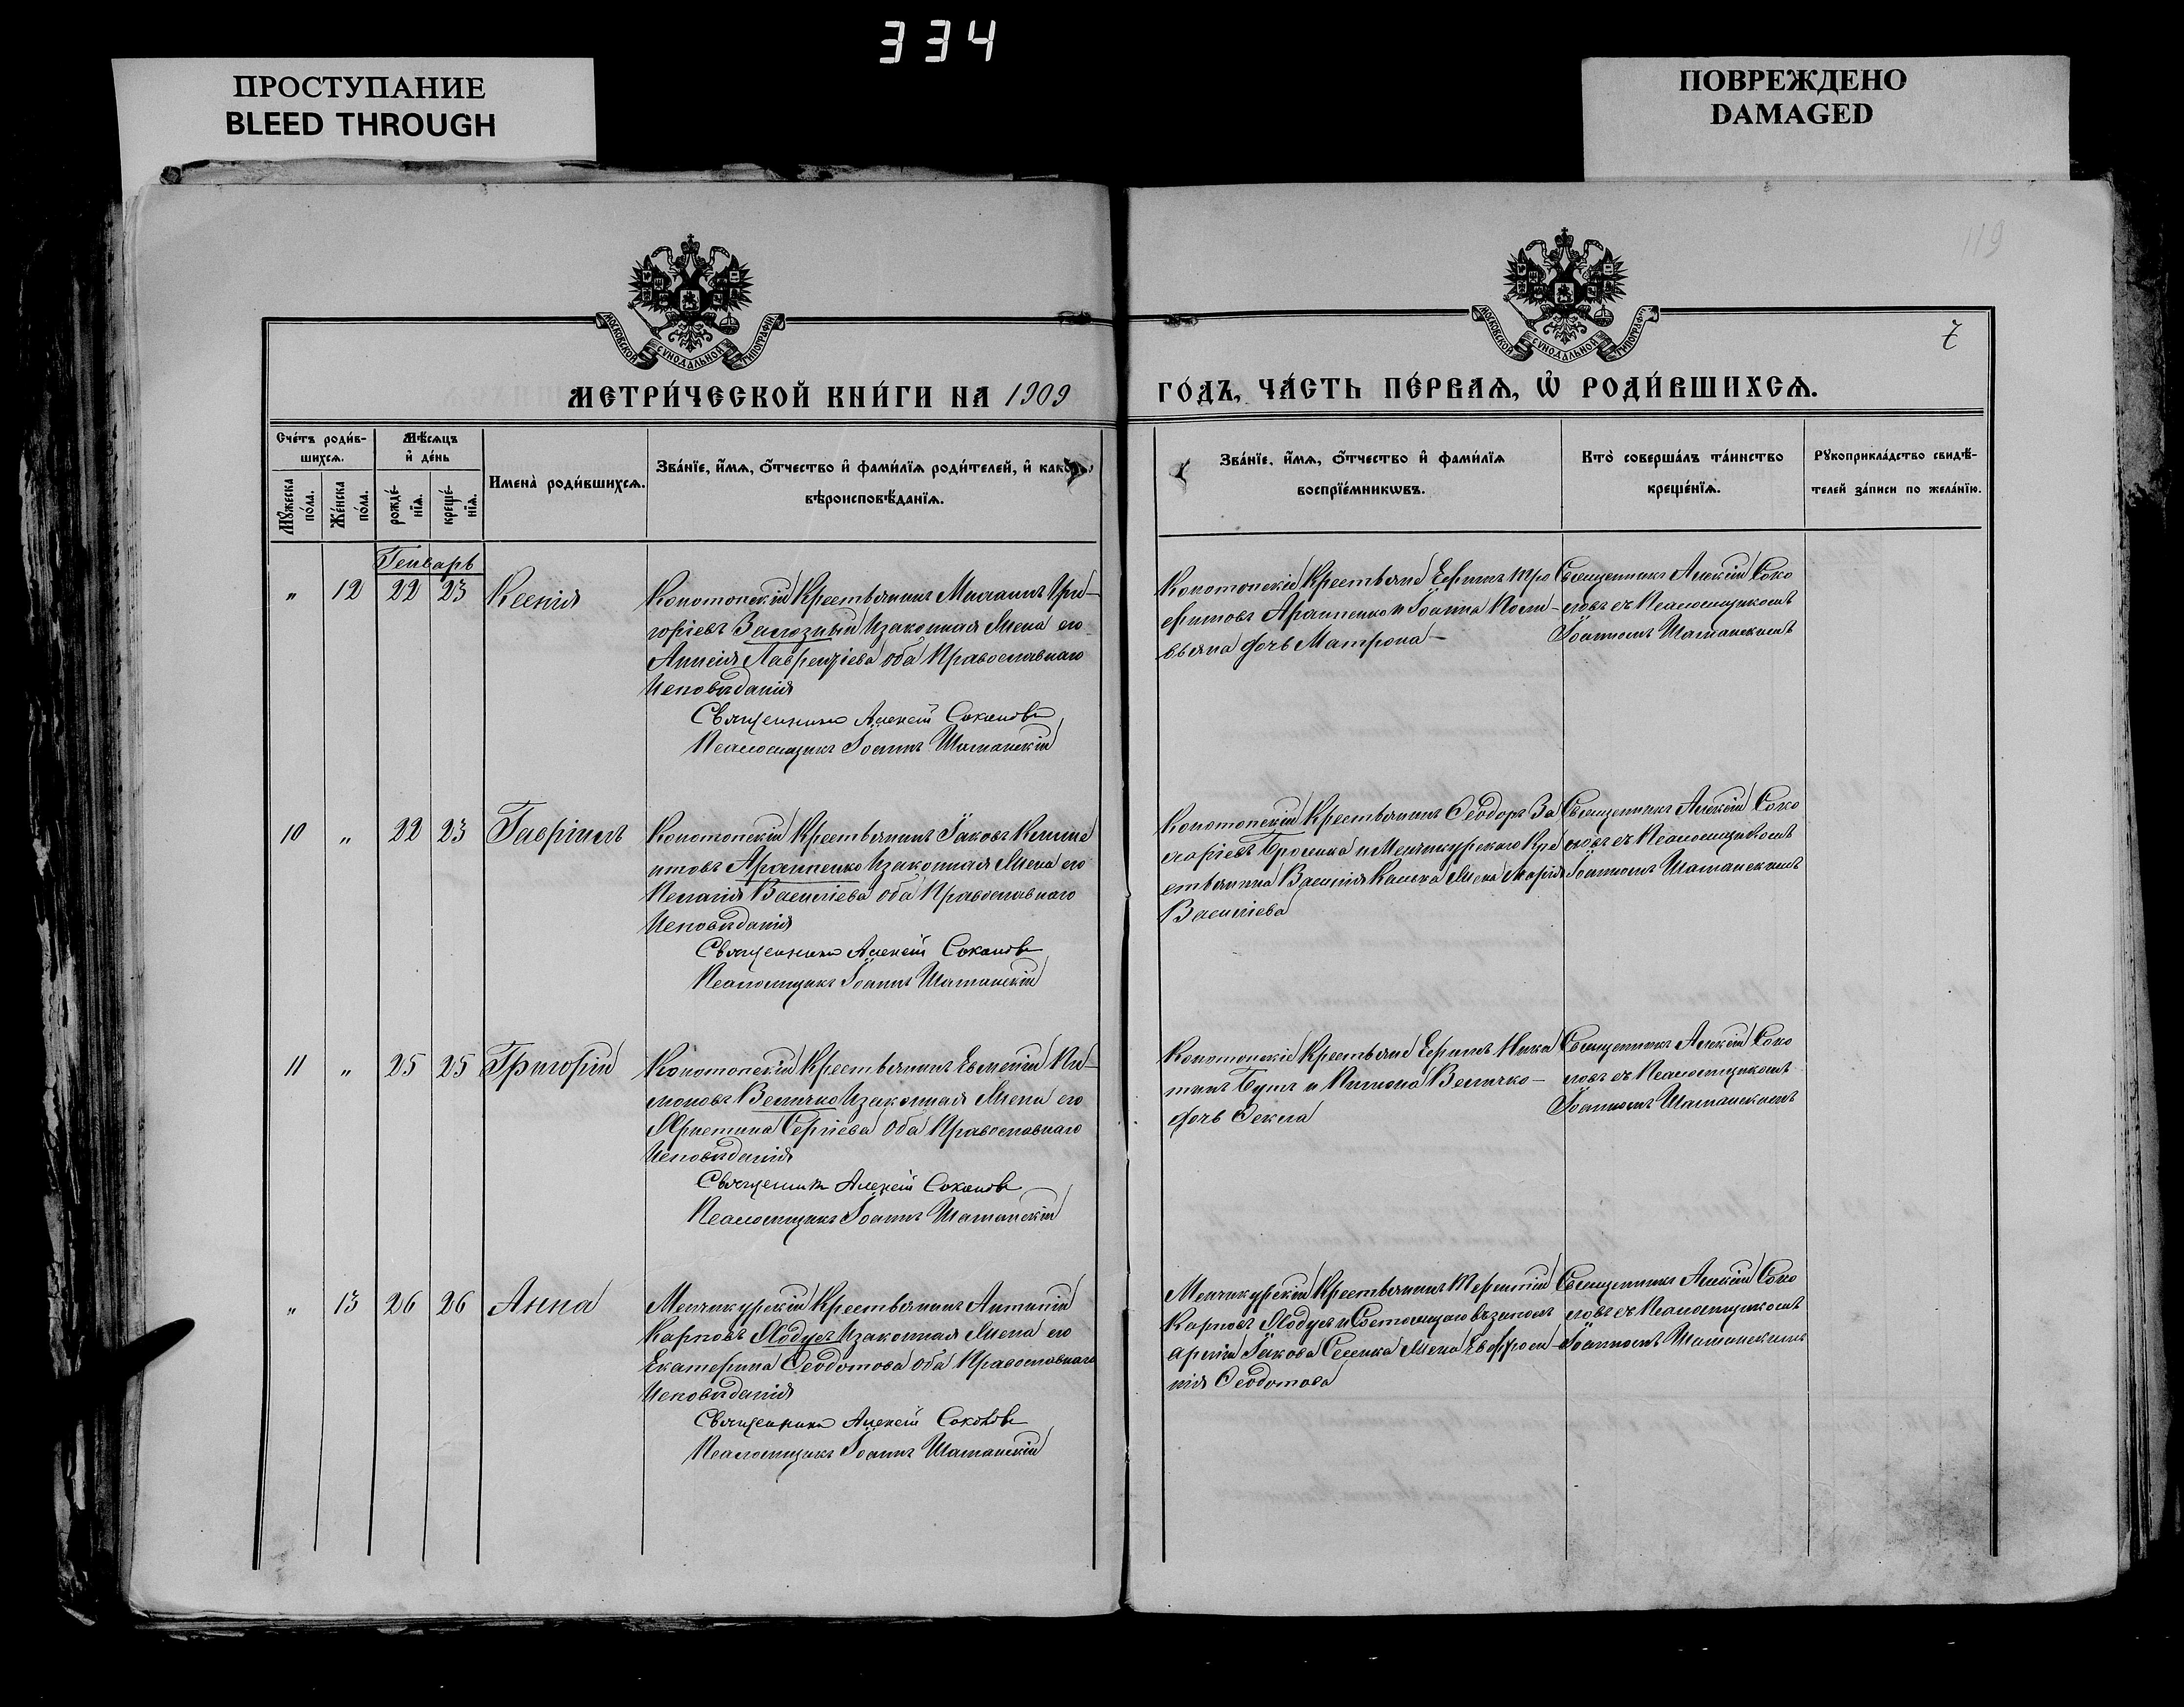 334
ПРОСТУПАНИЕ
BLEED THROUGH
ПОВРЕЖДЕНО
DAMAGED
119
7
МОСКОВСКОЙ СѴНОДАЛЬНОЙ ТИПОГРАФІИ
МОСКОВСКОЙ СѴНОДАЛЬНОЙ ТИПОГРАФІИ
МЕТРИ́ЧЕСКОЙ КНИ́ГИ НА 1909
ГО́ДЪ, ЧА́СТЬ ПЕ́РВАѦ, Ѽ РОДИ́ВШИХСѦ.
Сче́тъ роди́в-
шихсѧ.
Мꙋ́жеска
по́ла.
Же́нска
по́ла.
Мѣ́сѧцъ
и҆ де́нь
рожде́-
нїѧ.
креще́-
нїѧ.
Имена̀ роди́вшихсѧ.
Зва́нїе, и҆́мѧ, ѻ҆́тчество и҆ фами́лїѧ роди́телей, и҆
вѣроисповѣ́данїѧ.
Зва́нїе, и҆́мѧ, ѻ҆́тчество и҆ фами́лїѧ
воспрїе́мникѡвъ.
Кто̀ соверша́лъ та́инство
креще́нїѧ.
Рꙋкоприкла́дство свидѣ́-
телей за́писи по жела́нїю.
Генварь
" 12 22 23 Ксенія
Конотопскій Крестьянинъ Михаилъ Гри-
горіевъ Залозный Изаконная Жена его
Анисія Лаврентіева оба Православнаго
Исповѣданія
Священникъ Алексій Соколовъ
Псаломщикъ Іоаннъ Шаманскій
Конотопскіе Крестьяне Ефимъ Тро
фимовъ Арапенко и Іоанна
дочь Матрона
Священникъ Алексій Соко
ловъ съ Псаломщикомъ
Іоанномъ Шаманскимъ
10 " 22 23 Гавріилъ
Конотопскій Крестьянинъ Іаковъ Климе
нтовъ Арапенко Изаконная Жена его
Пелагія Василіева оба Православнаго
Исповѣданія
Священникъ Алексій Соколовъ
Псаломщикъ Іоаннъ Шаманскій
Конотопскій Крестьянинъ Ѳеодоръ За
харіевъ и Менчикурскаго Кре
стьянина Василія Жена Марія
Василіева
Священникъ Алексій Соко
ловъ съ Псаломщикомъ
Іоанномъ Шаманскимъ
11 " 25 25 Григорій
Конотопскій Крестьянинъ Евменій Фи-
моновъ Величко Изаконная Жена его
Христина Сергіева оба Православнаго
Исповѣданія
Священникъ Алексій Соколовъ
Псаломщикъ Іоаннъ Шаманскій
Конотопскіе Крестьяне Ефимъ Ника
и Величко
дочь Ѳекла
Священникъ Алексій Соко
ловъ съ Псаломщикомъ
Іоанномъ Шаманскимъ
" 13 26 26 Анна
Менчикурскій Крестьянинъ Антипій
Карповъ Ходусъ Изаконная Жена его
Екатерина Ѳеодотова оба Православнаго
Исповѣданія
Священникъ Алексій Соколовъ
Псаломщикъ Іоаннъ Шаманскій
Менчикурскій Крестьянинъ Терентій
Карповъ Ходусъ и Состоящаго въ запасѣ
арміи Іакова Сесика Жена Евфроси-
нія Ѳеодотова
Священникъ Алексій Соко
ловъ съ Псаломщикомъ
Іоанномъ Шаманскимъ